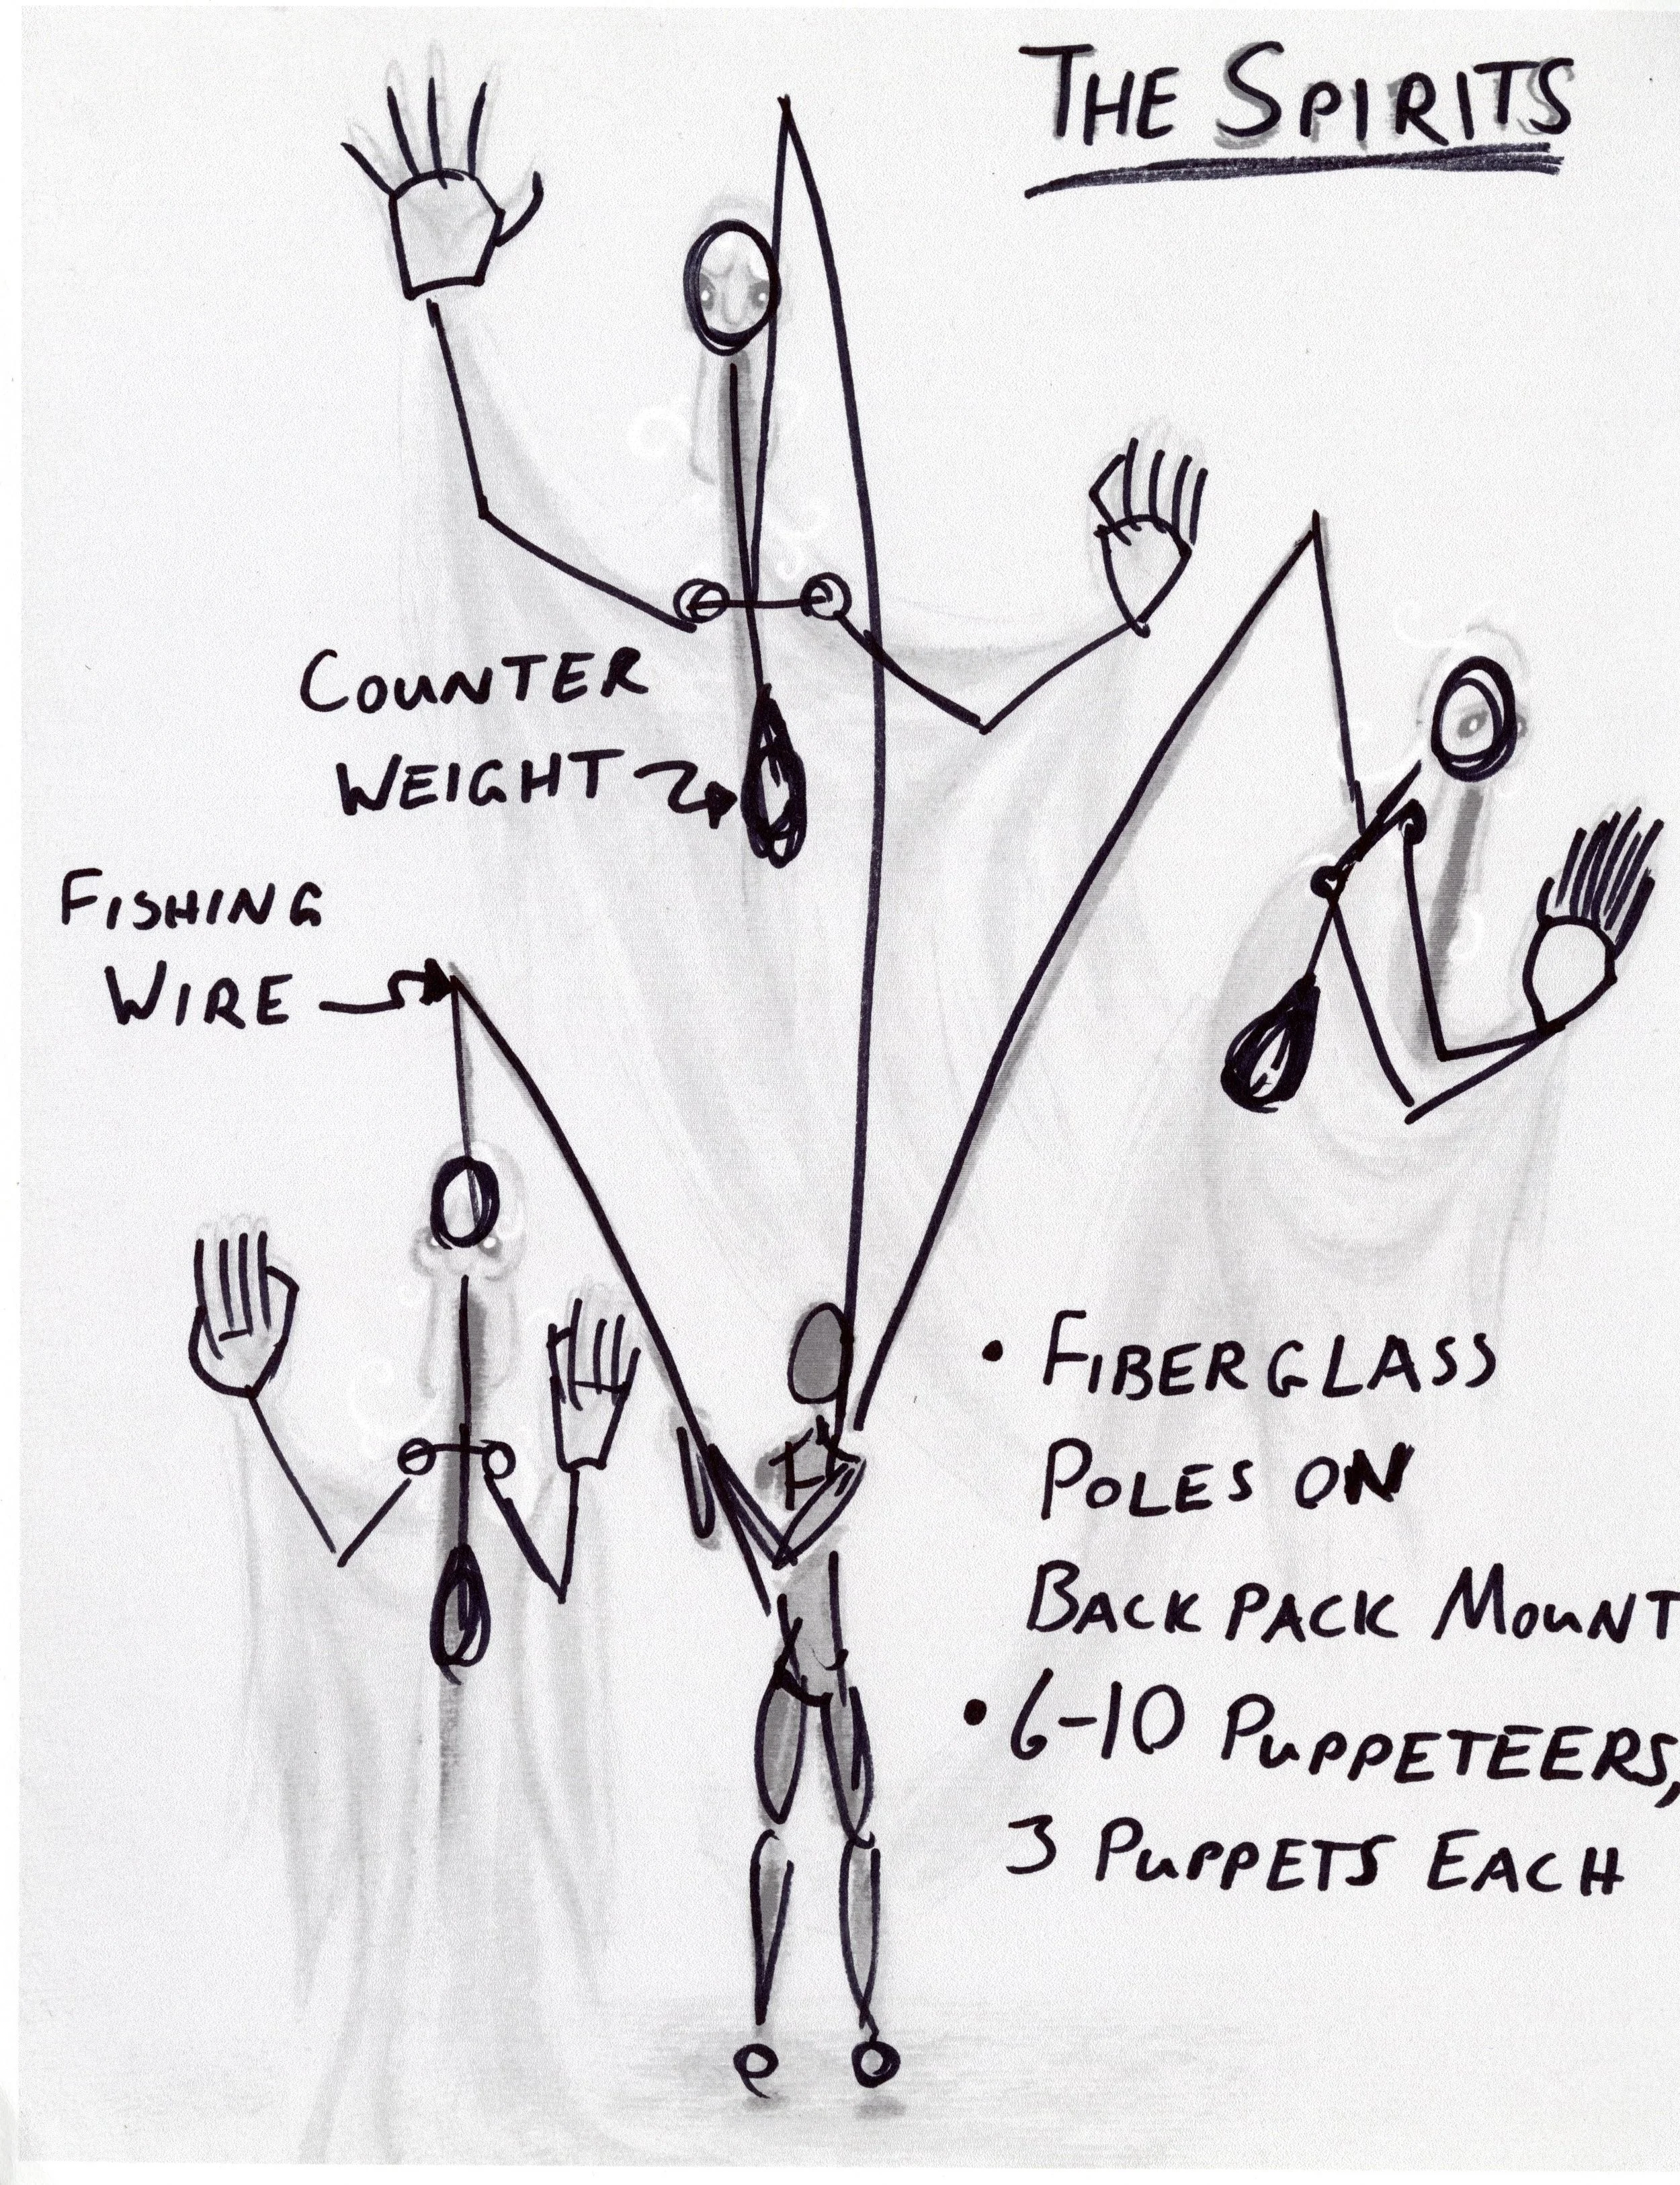 THE SPIRITS
COUNTER
WEIGHT
FISHING
WIRE
• FIBERGLASS
POLES ON
BACKPACK MOUNT
• 6-10 PUPPETEERS,
3 PUPPETS EACH